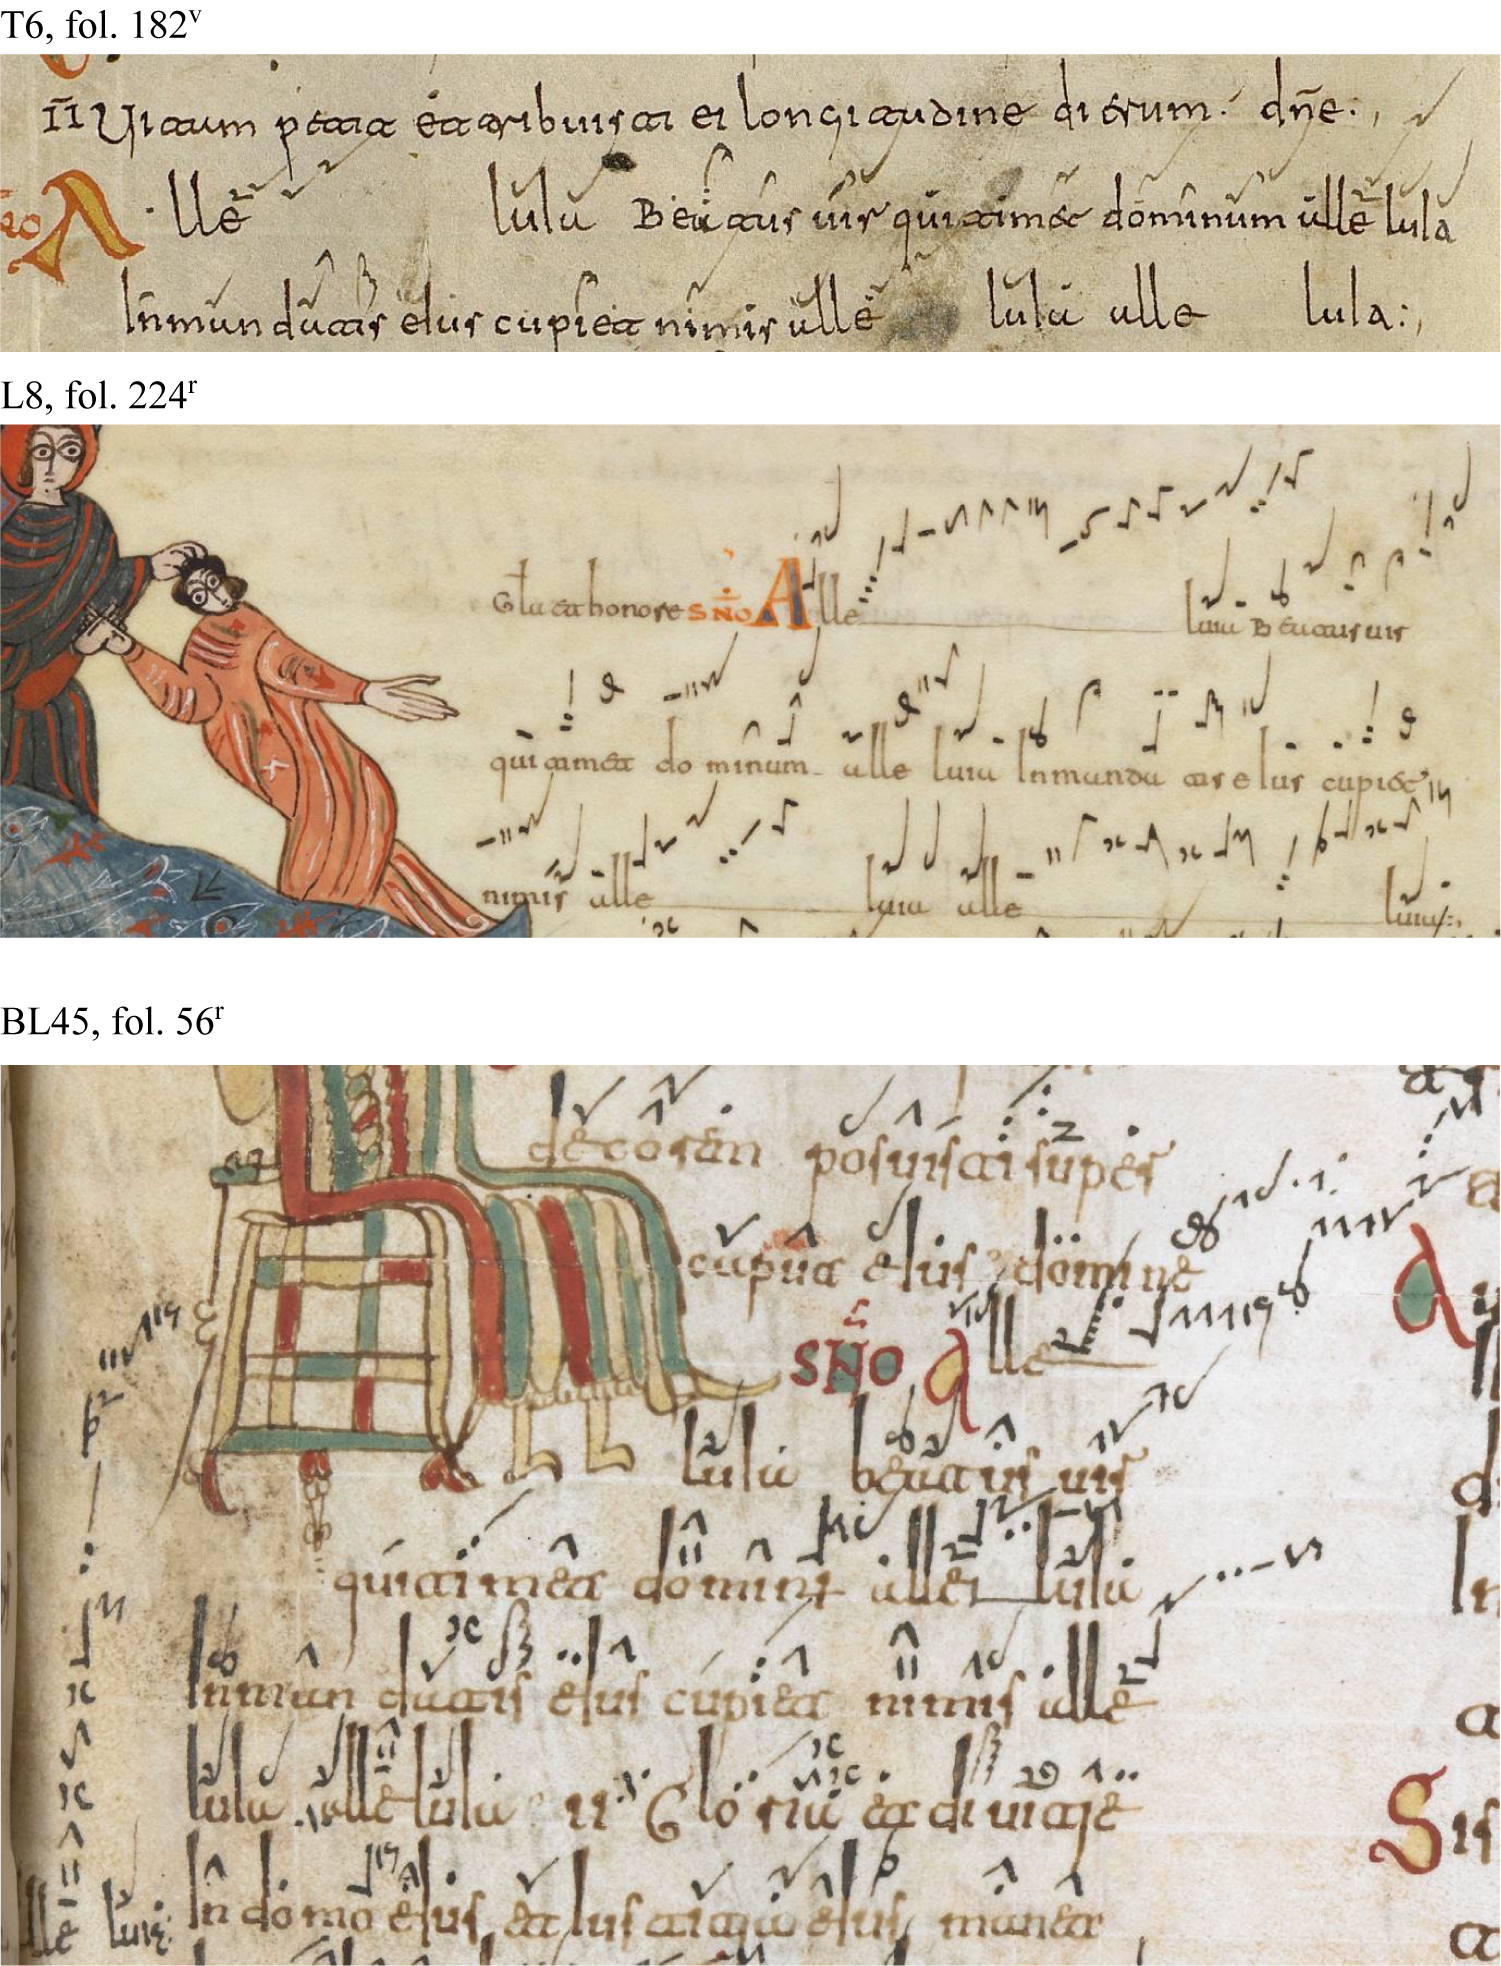 T6, fol. 182v
II Uitam petiit et tribuisti ei longitudine dierum. dñe.
SNO A lle lulu Beatus uir qui timet dominum alle lula
In mandatis eius cupiet nimis alle lulu alle lula
L8, fol. 224r
Gla et honore SNO Alle luiu Beatus uir
qui timet dominum alle luiu In mandatis eius cupiet
nimis alle luiu alle luiu
BL45, fol. 56r
decorem posuisti super
caput eius domine
SNO Alle
lulu beatus uir
qui timet domin alle lulu
In mandatis eius cupiet nimis alle
lulu alle lulu II Gloria et diuitie
In domo eius et iustitia eius manet